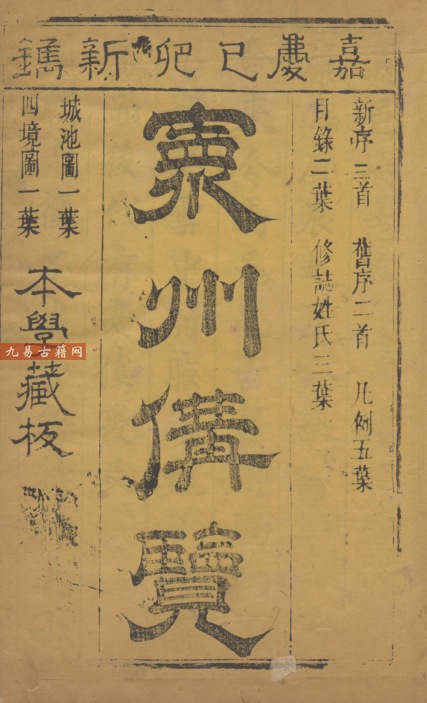 嘉慶己卯新鐫
新序三首　舊序二首　凡例五葉
目錄二葉　修誌姓氏三葉
州備覽
城池圖一葉
四境圖一葉
本學藏板
九易古籍网